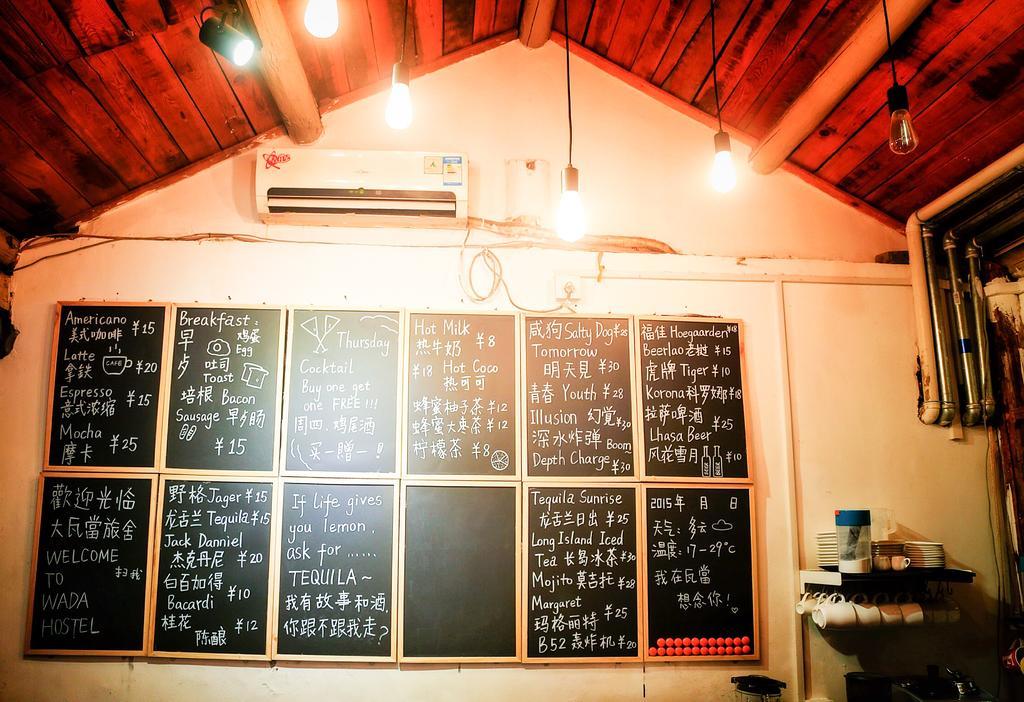 Americano ¥15
美式咖啡
Latte
拿铁 CAFE ¥20
Espresso
意式浓缩 ¥15
Mocha
摩卡 ¥25
Breakfast:
早 鸡蛋
Egg
吐司
Toast
培根 Bacon
Sausage 早夕肠
¥15
Thursday
Cocktail
Buy one get
one FREE!!!
周四.鸡尾酒
买一赠一!
Hot Milk
热牛奶 ¥8
¥18 Hot Coco
热可可
蜂蜜柚子茶 ¥12
蜂蜜大枣茶 ¥12
柠檬茶 ¥8
咸狗 Salty Dog ¥25
Tomorrow
明天見 ¥30
青春 Youth ¥28
Illusion 幻覚 ¥30
深水炸弹 Boom
Depth Charge ¥30
福佳 Hoegaarden ¥18
Beerlao 老挝 ¥15
虎牌 Tiger ¥10
Korona 科罗娜 ¥18
拉萨啤酒 ¥25
Lhasa Beer
风花雪月 ¥10
歡迎光临
大瓦當旅舍
WELCOME
TO 扫我
WADA
HOSTEL
野格 Jager ¥15
龙舌兰 Tequila ¥15
Jack Danniel
杰克丹尼 ¥20
白百加得
Bacardi ¥10
桂花
陈酿 ¥12
If life gives
you lemon,
ask for ......
TEQUILA~
我有故事和酒.
你跟不跟我走?
Tequila Sunrise
龙舌兰日出 ¥25
Long Island Iced
Tea 长岛冰茶 ¥30
Mojito 莫吉托 ¥28
Margaret
玛格丽特 ¥25
B52 轰炸机 ¥20
2015年 月 日
天气: 多云
温度: 17-29°C
我在瓦當
想念你!